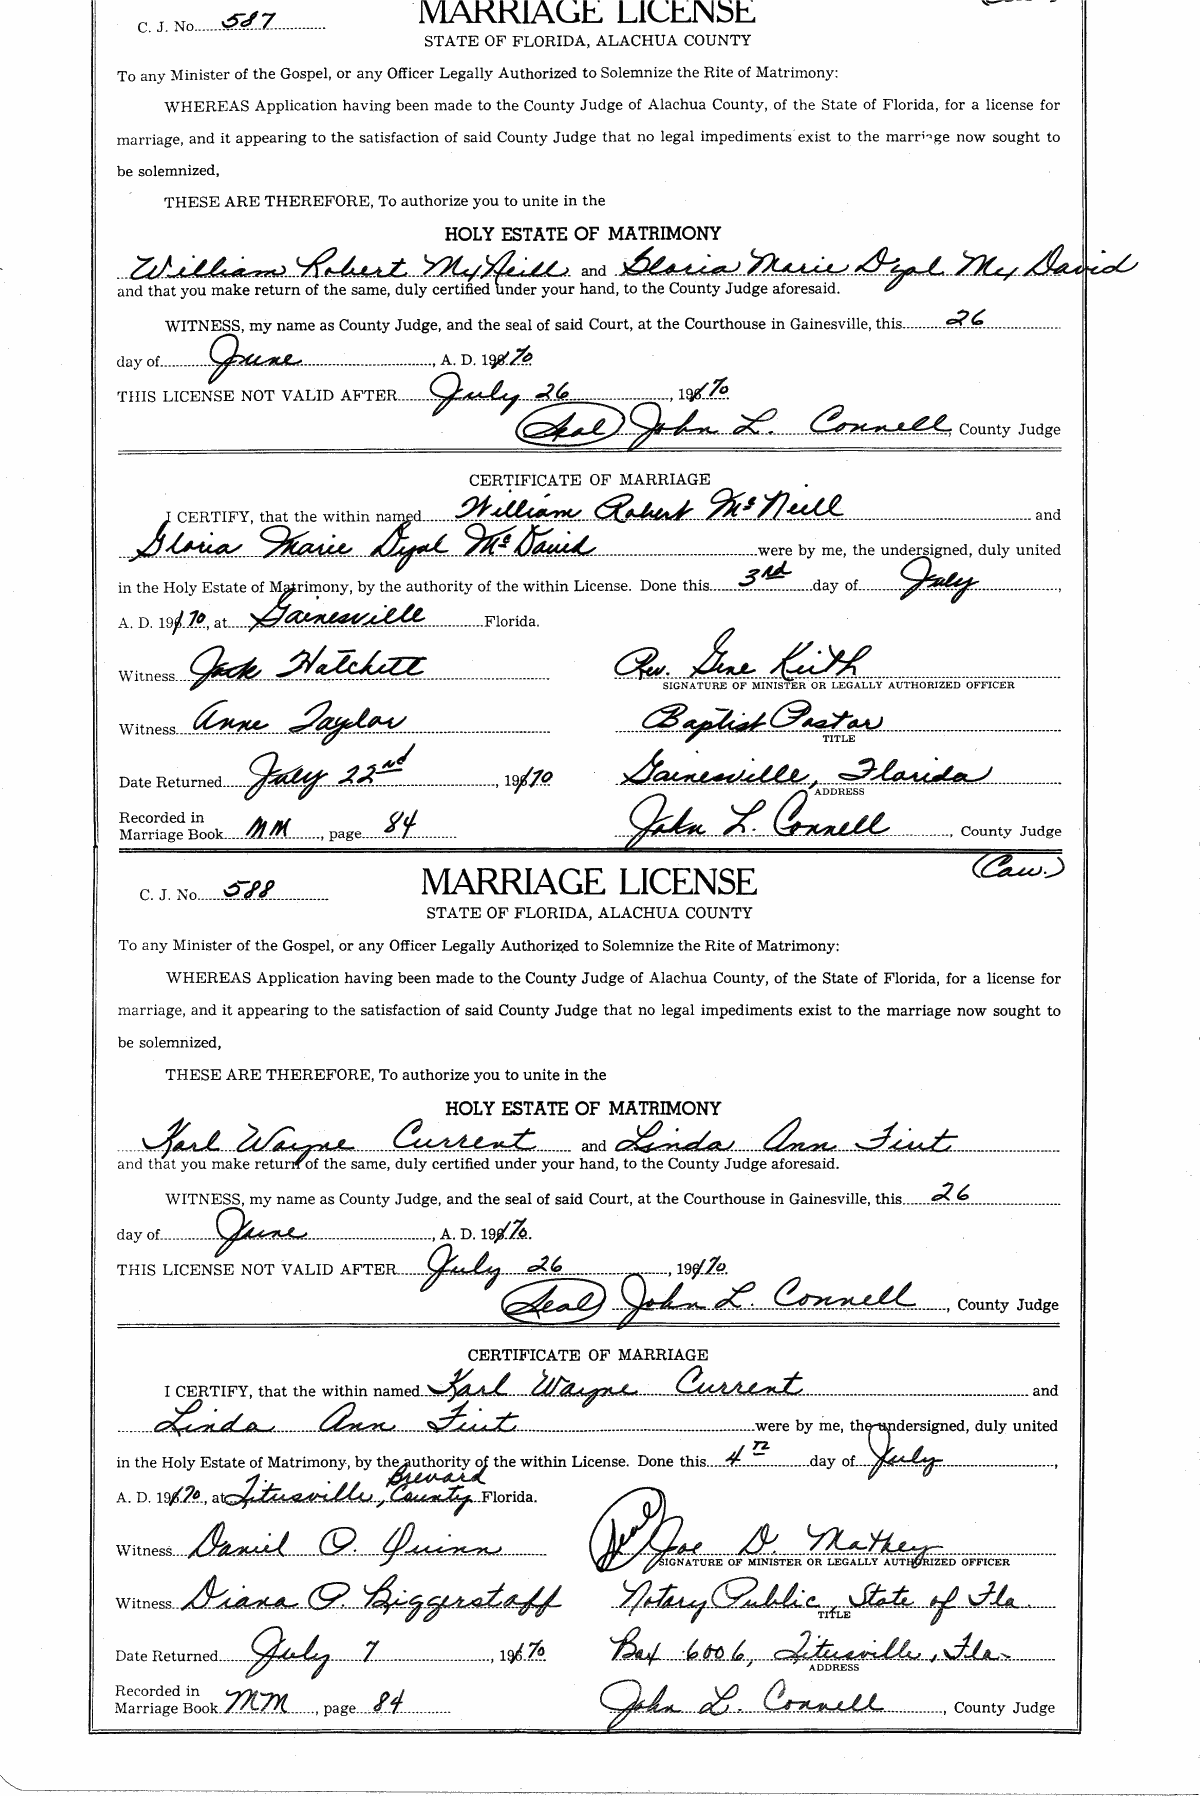 MARRIAGE LICENSE
C. J. No. 587
STATE OF FLORIDA, ALACHUA COUNTY
To any Minister of the Gospel, or any Officer Legally Authorized to Solemnize the Rite of Matrimony:
WHEREAS Application having been made to the County Judge of Alachua County, of the State of Florida, for a license for
marriage, and it appearing to the satisfaction of said County Judge that no legal impediments exist to the marriage now sought to
be solemnized,
THESE ARE THEREFORE, To authorize you to unite in the
HOLY ESTATE OF MATRIMONY
William Robert McNeill and Gloria Marie Dyal McDavid
and that you make return of the same, duly certified under your hand, to the County Judge aforesaid.
WITNESS, my name as County Judge, and the seal of said Court, at the Courthouse in Gainesville, this 26
day of June, A. D. 1970
THIS LICENSE NOT VALID AFTER July 26, 1970
(Seal) John L. Connell, County Judge
CERTIFICATE OF MARRIAGE
I CERTIFY, that the within named William Robert McNeill and
Gloria Marie Dyal McDavid were by me, the undersigned, duly united
in the Holy Estate of Matrimony, by the authority of the within License. Done this 3rd day of July,
A. D. 1970, at Gainesville Florida.
Witness Jack Hatchett Rev. Gene Keith
SIGNATURE OF MINISTER OR LEGALLY AUTHORIZED OFFICER
Witness Anne Taylor Baptist Pastor
TITLE
Date Returned July 22nd, 1970 Gainesville, Florida
ADDRESS
Recorded in
Marriage Book MM, page 84 John L. Connell, County Judge
(Cau.)
C. J. No. 588 MARRIAGE LICENSE
STATE OF FLORIDA, ALACHUA COUNTY
To any Minister of the Gospel, or any Officer Legally Authorized to Solemnize the Rite of Matrimony:
WHEREAS Application having been made to the County Judge of Alachua County, of the State of Florida, for a license for
marriage, and it appearing to the satisfaction of said County Judge that no legal impediments exist to the marriage now sought to
be solemnized,
THESE ARE THEREFORE, To authorize you to unite in the
HOLY ESTATE OF MATRIMONY
Karl Wayne Current and Linda Ann
and that you make return of the same, duly certified under your hand, to the County Judge aforesaid.
WITNESS, my name as County Judge, and the seal of said Court, at the Courthouse in Gainesville, this 26
day of June, A. D. 1970.
THIS LICENSE NOT VALID AFTER July 26, 1970
(Seal) John L. Connell, County Judge
CERTIFICATE OF MARRIAGE
I CERTIFY, that the within named Karl Wayne Current and
Linda Ann were by me, the undersigned, duly united
in the Holy Estate of Matrimony, by the authority of the within License. Done this 4th day of July,
Brevard
A. D. 1970, at Titusville, County Florida.
Witness Daniel O. Quinn (Seal) Joe D. Mathey
SIGNATURE OF MINISTER OR LEGALLY AUTHORIZED OFFICER
Witness Diana P. Biggerstaff Notary Public, State of Fla.
TITLE
Date Returned July 7, 1970 Box 6006, Titusville, Fla.
ADDRESS
Recorded in
Marriage Book MM, page 84 John L. Connell, County Judge